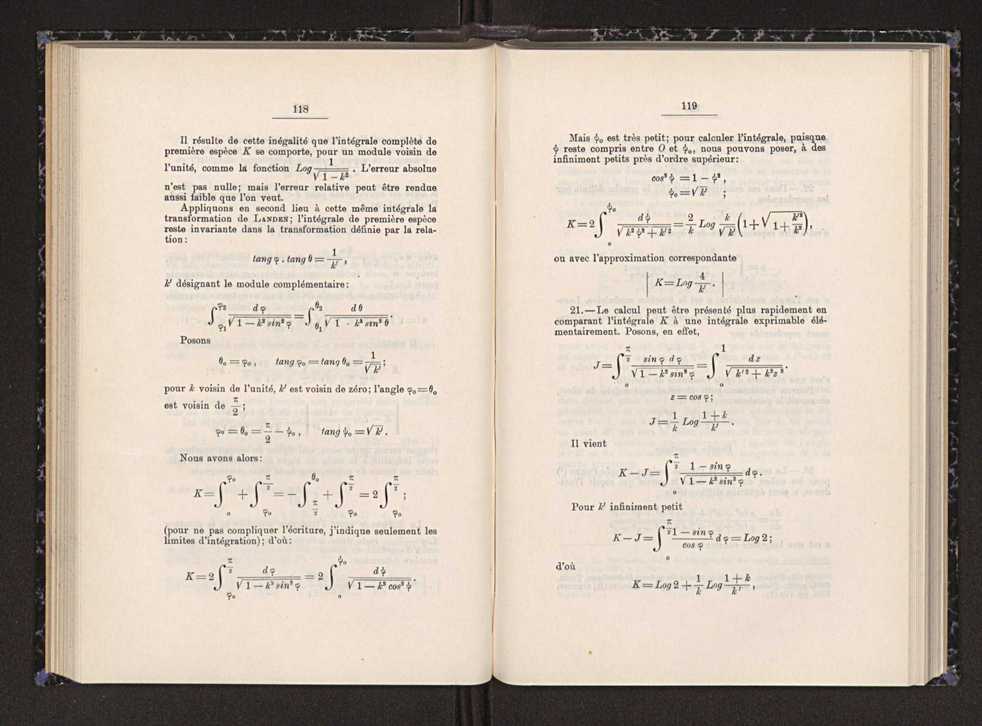 118
Il résulte de cette inégalité que l'intégrale complète de
première espèce K se comporte, pour un module voisin de
l'unité, comme la fonction Log 1/√(1 — k²) . L'erreur absolue
n'est pas nulle; mais l'erreur relative peut être rendue
aussi faible que l'on veut.
Appliquons en second lieu à cette même intégrale la
transformation de LANDEN; l'intégrale de première espèce
reste invariante dans la transformation définie par la rela-
tion:
tang φ . tang θ = 1/k' ,
k' désignant le module complémentaire:
∫_{φ₁}^{φ₂} dφ/√(1 — k² sin² φ) = ∫_{θ₁}^{θ₂} dθ/√(1 - k² sin² θ) .
Posons
θ₀ = φ₀ , tang φ₀ = tang θ₀ = 1/√k' ;
pour k voisin de l'unité, k' est voisin de zéro; l'angle φ₀ = θ₀
est voisin de π/2 ;
φ₀ = θ₀ = π/2 — ψ₀ , | tang ψ₀ = √k' .
Nous avons alors:
K = ∫_{o}^{φ₀} + ∫_{φ₀}^{π/2} = — ∫_{π/2}^{θ₀} + ∫_{φ₀}^{π/2} = 2 ∫_{φ₀}^{π/2} ;
(pour ne pas compliquer l'écriture, j'indique seulement les
limites d'intégration); d'où:
K = 2 ∫_{φ₀}^{π/2} dφ/√(1 — k² sin² φ) = 2 ∫_{o}^{ψ₀} dψ/√(1 — k² cos² ψ) .
119
Mais ψ₀ est très petit; pour calculer l'intégrale, puisque
ψ reste compris entre O et ψ₀, nous pouvons poser, à des
infiniment petits près d'ordre supérieur:
cos² ψ = 1 — ψ² ,
ψ₀ = √k' ;
K = 2 ∫_{o}^{ψ₀} dψ/√(k² ψ² + k'²) = 2/k Log k/√k' (1 + √(1 + k'²/k²)) ,
ou avec l'approximation correspondante
| K = Log 4/k' . |
21. — Le calcul peut être présenté plus rapidement en
comparant l'intégrale K à une intégrale exprimable élé-
mentairement. Posons, en effet,
J = ∫_{o}^{π/2} sin φ dφ/√(1 — k² sin² φ) = ∫_{o}^{1} dz/√(k'² + k² z²) .
z = cos φ ;
J = 1/k Log (1 + k)/k' .
Il vient
K — J = ∫_{o}^{π/2} (1 — sin φ)/√(1 — k² sin² φ) dφ .
Pour k' infiniment petit
K — J = ∫_{o}^{π/2} (1 — sin φ)/cos φ dφ = Log 2 ;
d'où
K = Log 2 + 1/k Log (1 + k)/k' ,